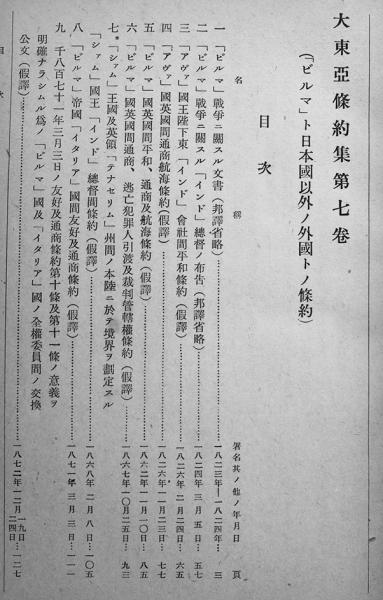 大東亞條約集第七卷
(「ビルマ」ト日本國以外ノ外國トノ條約)
目次
名稱 署名其ノ他ノ年月日 頁
一 「ビルマ」戰爭ニ關スル文書(邦譯省略)…一八二三年―一八二四年… 三
二 「ビルマ」戰爭ニ關スル「インド」總督ノ布吿(邦譯省略)…一八二四年 三月 五日… 五七
三 「アヴァ」國王陛下東「インド」會社間平和條約(假譯)…一八二六年 二月二四日… 六五
四 「アヴァ」國英國間通商航海條約(假譯)…一八二六年一一月二三日… 七七
五 「ビルマ」國英國間平和、通商及航海條約(假譯)…一八六二年一一月一〇日… 八五
六 「ビルマ」國英國間通商、逃亡犯罪人引渡及裁判管轄權條約(假譯)…一八六七年一〇月二五日… 九三
七 「シァム」王國及英領「テナセリム」州間ノ本陸ニ於テ境界ヲ劃定スル
「シァム」國王「インド」總督間條約(假譯)…一八六八年 二月 八日…一〇五
八 「ビルマ」帝國「イタリア」國間友好及通商條約(假譯)…一八七一年 三月 三日…一一一
九 千八百七十一年三月三日ノ友好及通商條約第十條及第十一條ノ意義ヲ
明確ナラシムル爲ノ「ビルマ」國及「イタリア」國ノ全權委員間ノ交換
公文(假譯)…一八七二年一二月一九日 二四日…一二七
目次